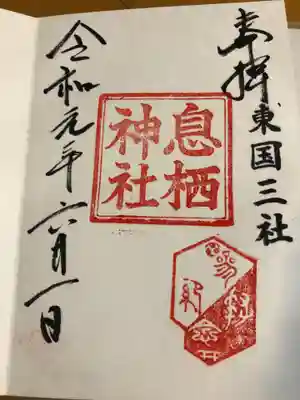 奉拝
東国三社
息栖
神社
令和元年六月一日